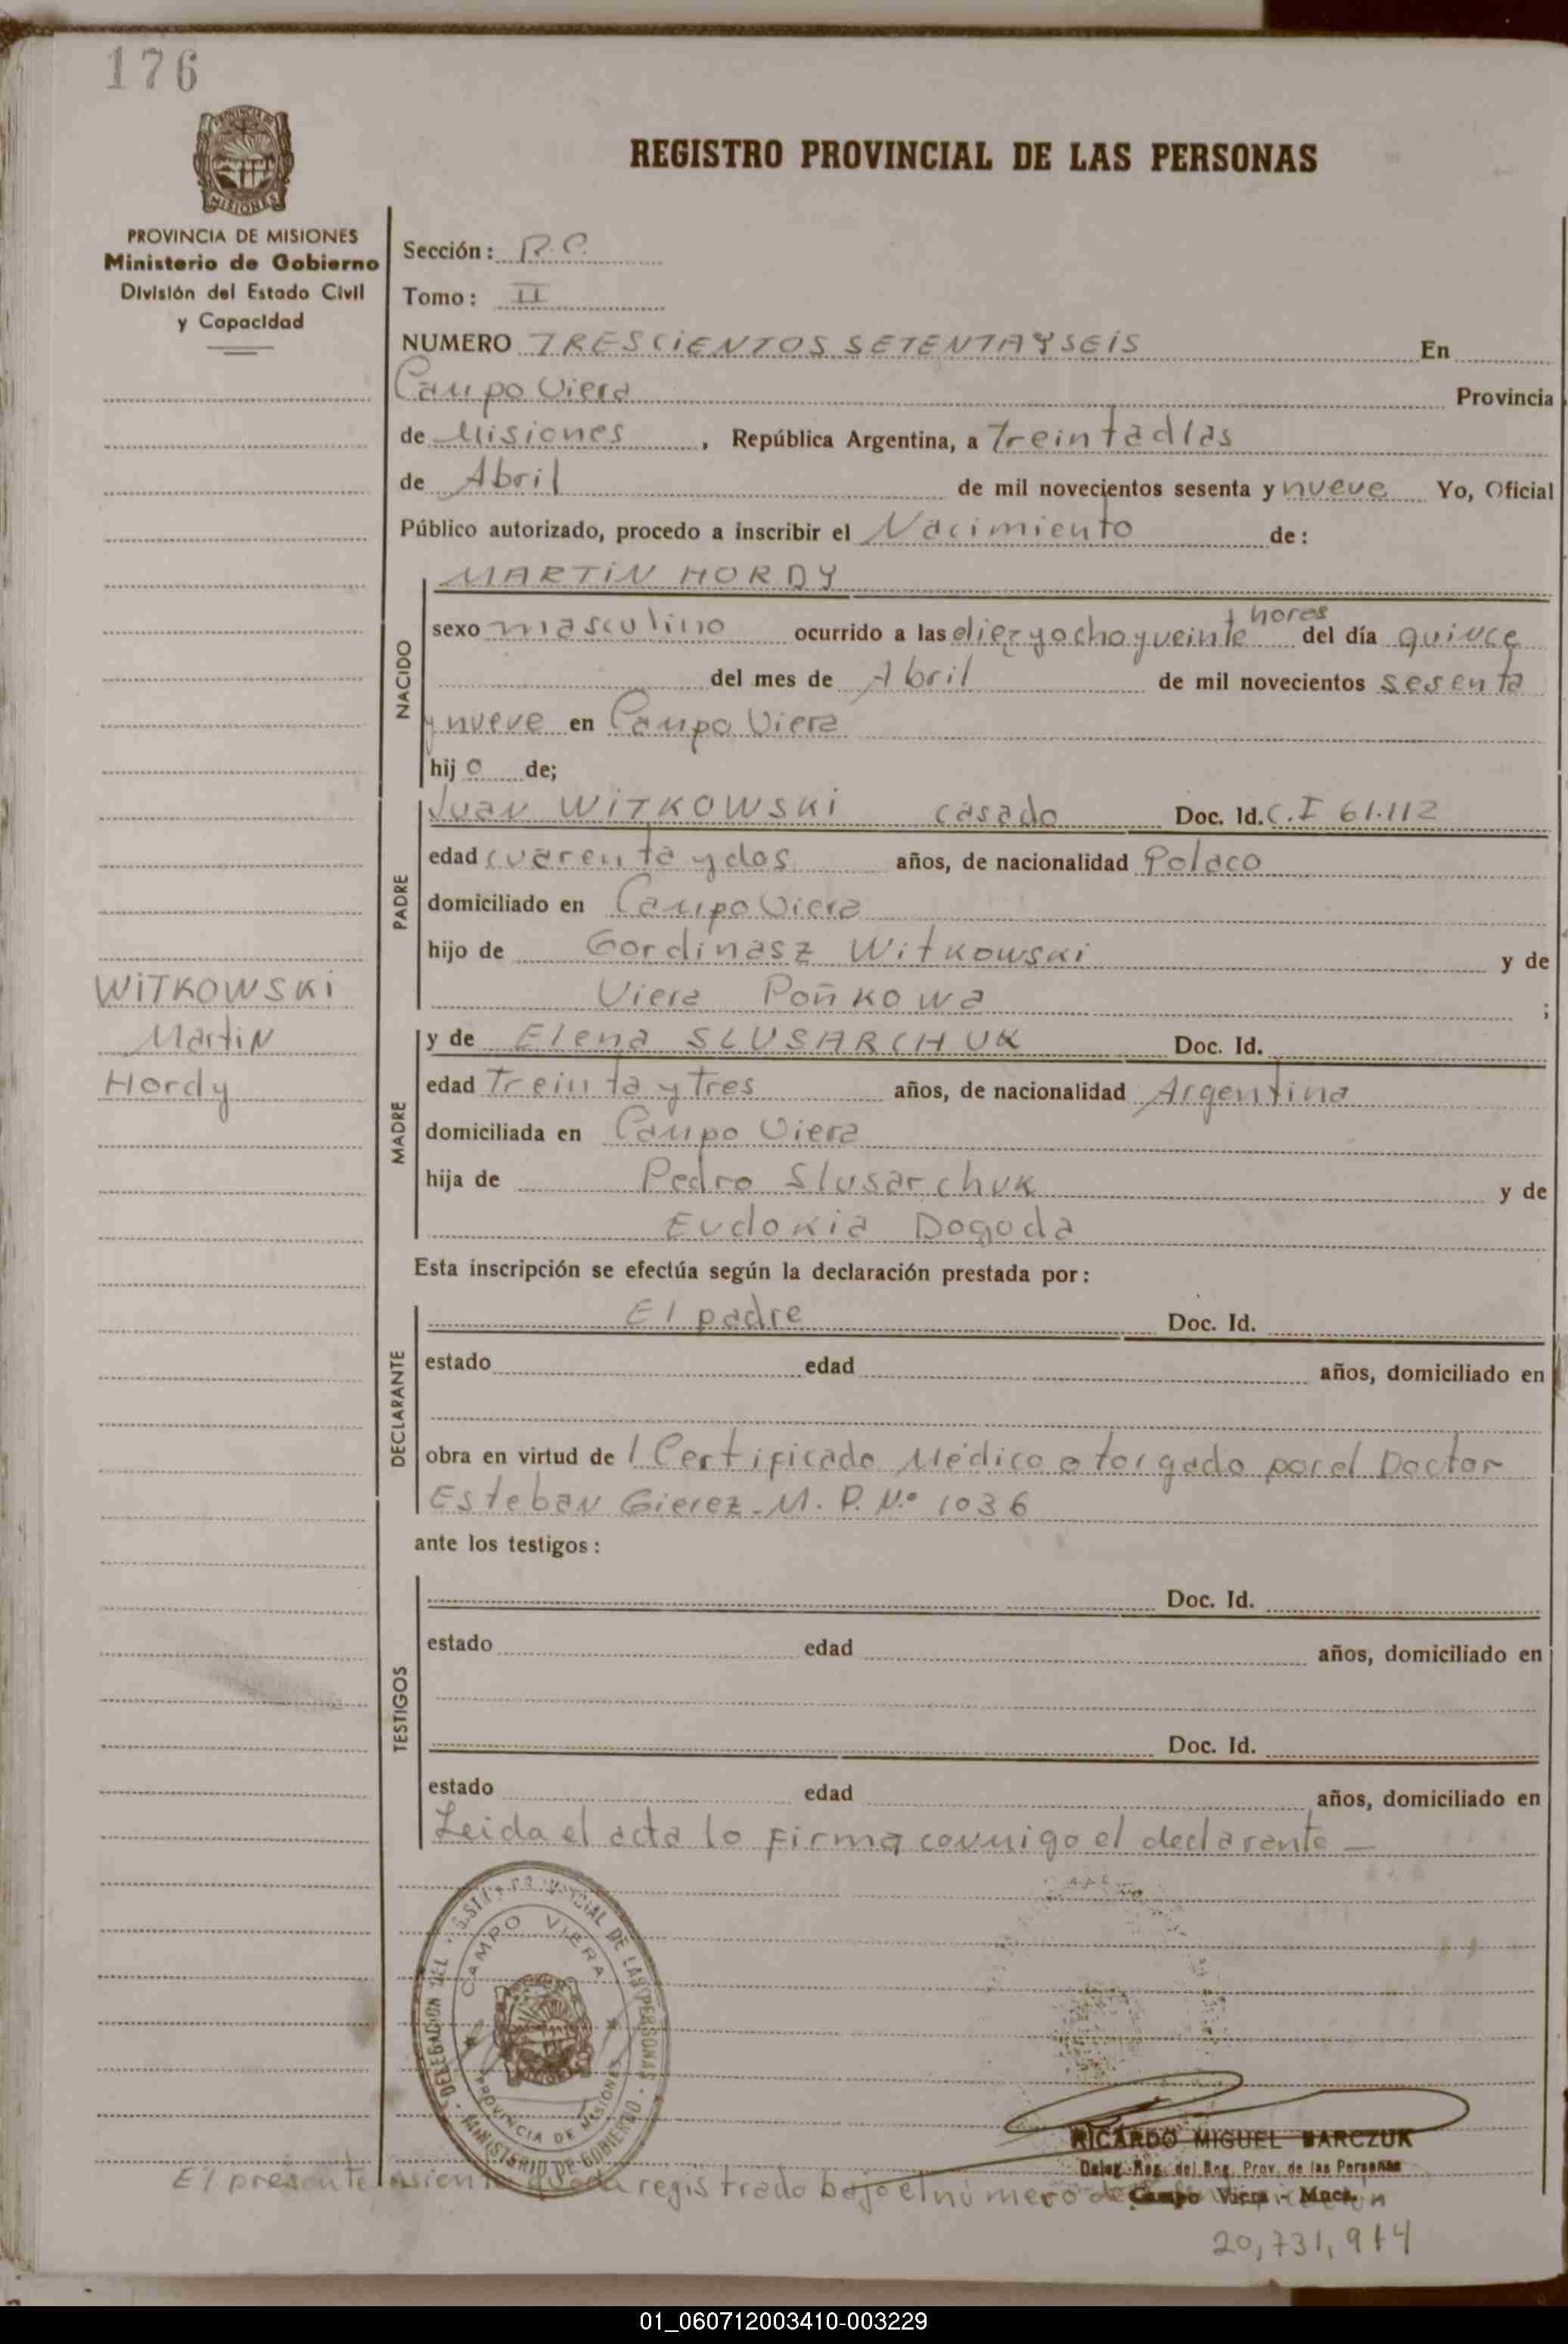 176
REGISTRO PROVINCIAL DE LAS PERSONAS
MISIONES
PROVINCIA DE MISIONES
Ministerio de Gobierno
División del Estado Civil
y Capacidad
Sección: R.C.
Tomo: II
NUMERO TRESCIENTOS SETENTA Y SEIS En
Campo Viera Provincia
de Misiones, República Argentina, a Treinta dias
de Abril de mil novecientos sesenta y nueve Yo, Oficial
Público autorizado, procedo a inscribir el Nacimiento de:
NACIDO
MARTIN HORDY
horas
sexo masculino ocurrido a las diez y ocho y veinte del día quince
del mes de Abril de mil novecientos sesenta
y nueve en Campo Viera
hijo de;
PADRE
Juan WITKOWSKI casado Doc. Id. C.I 61.112
edad cuarenta y dos años, de nacionalidad Polaco
domiciliado en Campo Viera
hijo de Gordinasz Witkowski y de
Viera Poñkowa ;
WITKOWSKI
Martin
Hordy
MADRE
y de Elena SLUSARCHUK Doc. Id.
edad Treinta y Tres años, de nacionalidad Argentina
domiciliada en Campo Viera
hija de Pedro Slusarchuk y de
Eudokia Dogoda
Esta inscripción se efectúa según la declaración prestada por:
DECLARANTE
El padre Doc. Id.
estado edad años, domiciliado en
obra en virtud de 1 Certificado Médico otorgado por el Doctor
Esteban Gierez - M. P. N.º 1036
ante los testigos:
TESTIGOS
Doc. Id.
estado edad años, domiciliado en
Doc. Id.
estado edad años, domiciliado en
Leida el acta lo firma conmigo el declarante —
DELEGACION DEL REGISTRO PROVINCIAL DE LAS PERSONAS
CAMPO VIERA
PROVINCIA DE MISIONES
MINISTERIO DE GOBIERNO
RICARDO MIGUEL BARCZUK
Deleg. Reg. del Reg. Prov. de las Personas
Campo Viera - Mnes.
El presente asiento queda registrado bajo el numero de
20,731,914
01_060712003410-003229